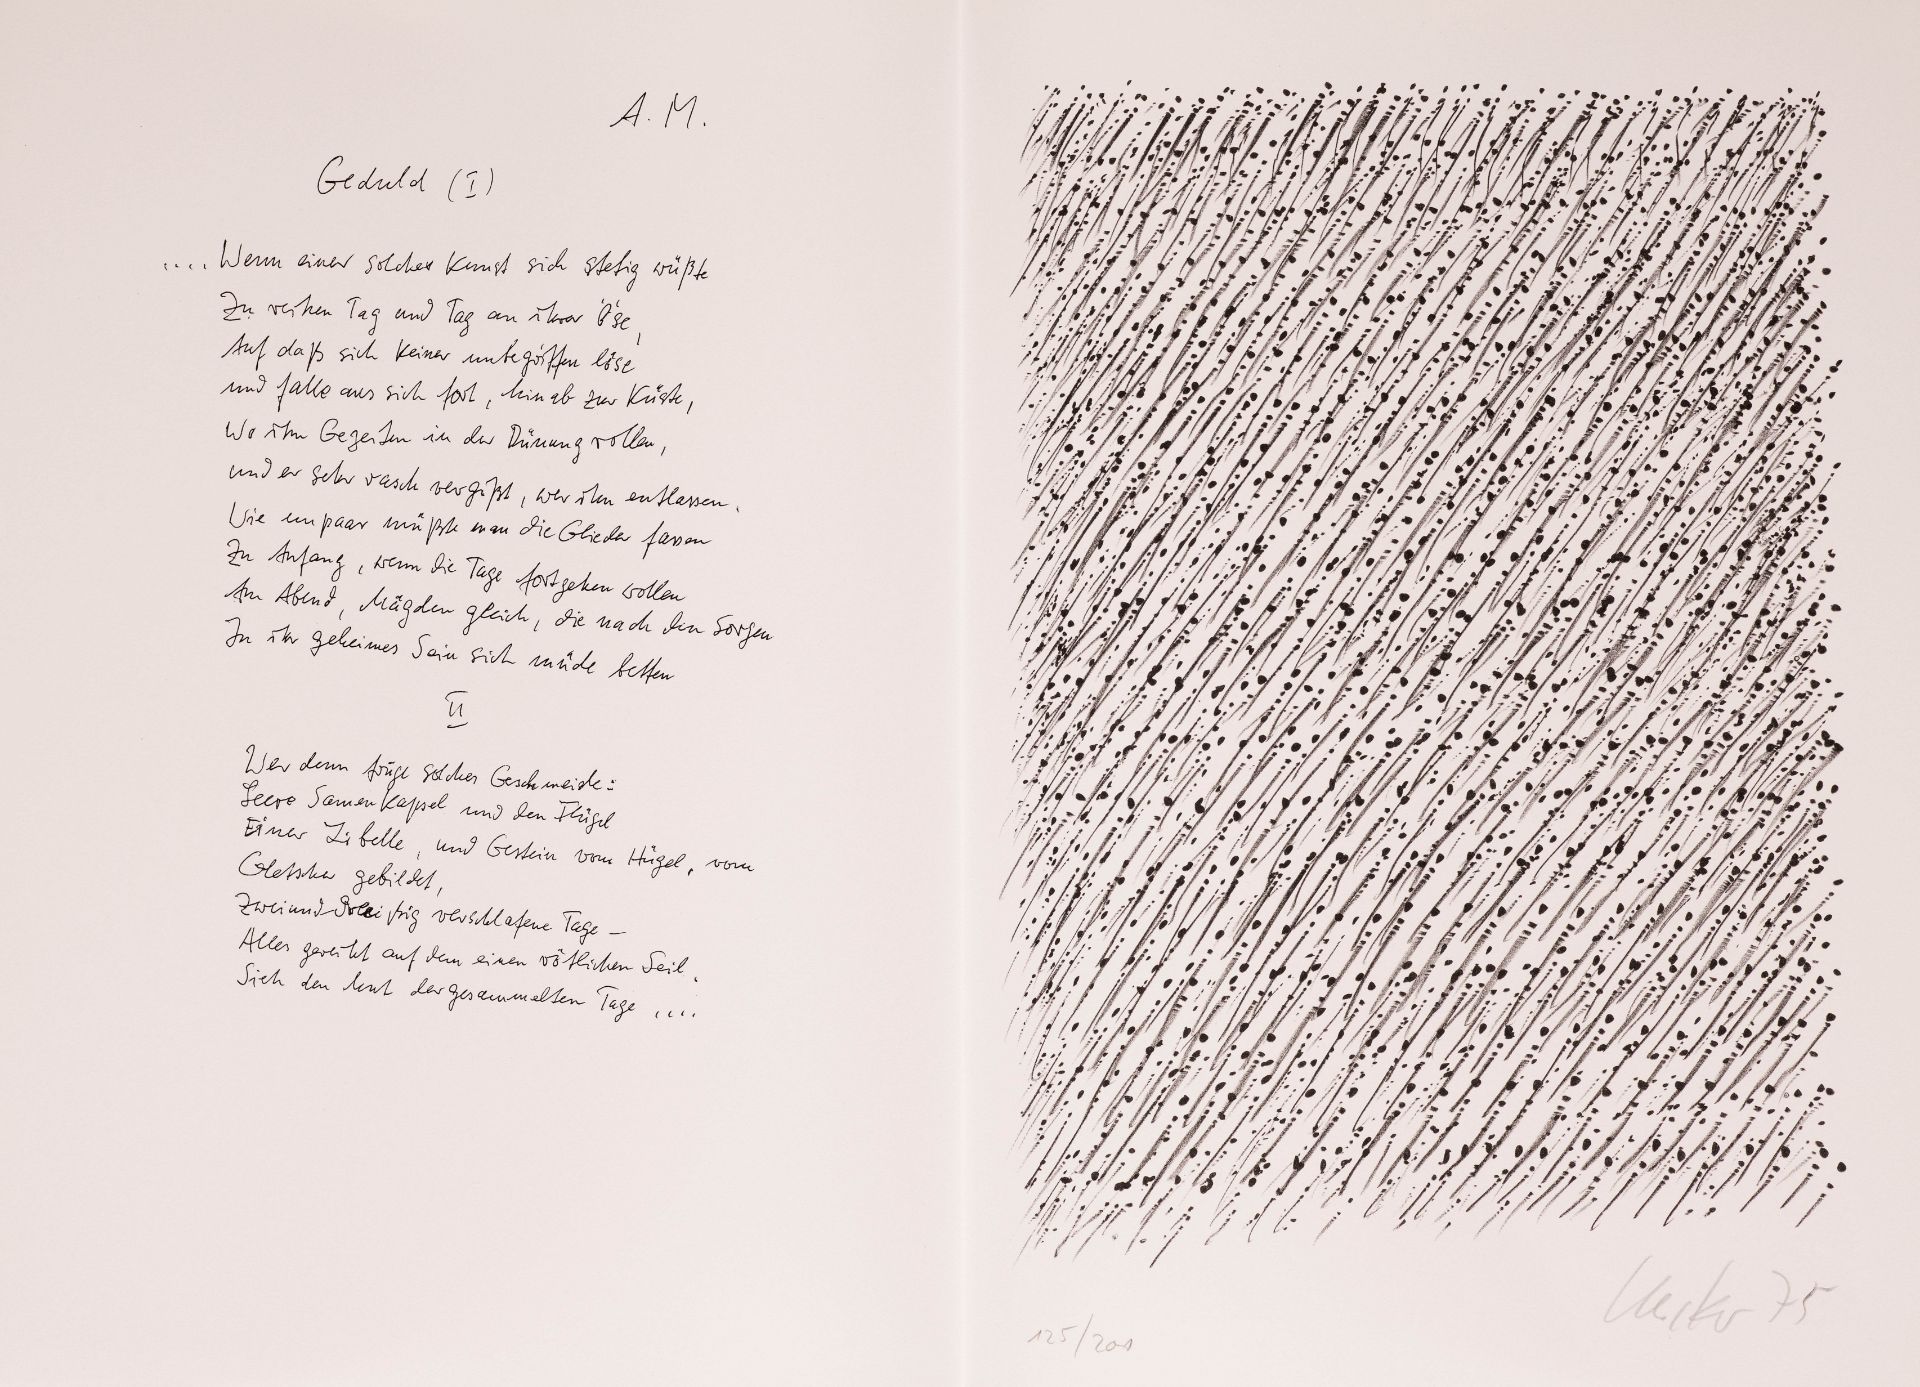 A. M.
Geduld (I)
.... Wenn einer solcher Kunst sich stetig wüßte
Zu reihen Tag und Tag an ihrer Öse,
Auf daß sich keiner unbegriffen löse
und falle aus sich fort, hinab zur Küste,
Wo ihn Gezeiten in der Dünung rollen,
und er sehr rasch vergißt, wer ihn entlassen.
Wie unpaar müßte man die Glieder fassen
Zu Anfang, wenn die Tage fortgehen wollen
Am Abend, Mägden gleich, die nach den Sorgen
In ihr geheimes Sein sich müde betten
II
Wer denn trüge solches Geschmeide:
Leere Samenkapsel und den Flügel
Einer Libelle, und Gestein vom Hügel, vom
Gletscher gebildet,
Zweiunddreißig verschlafene Tage —
Alles gereiht auf dem einen rötlichen Seil.
Sieh den der gesammelten Tage ....
125/200
75